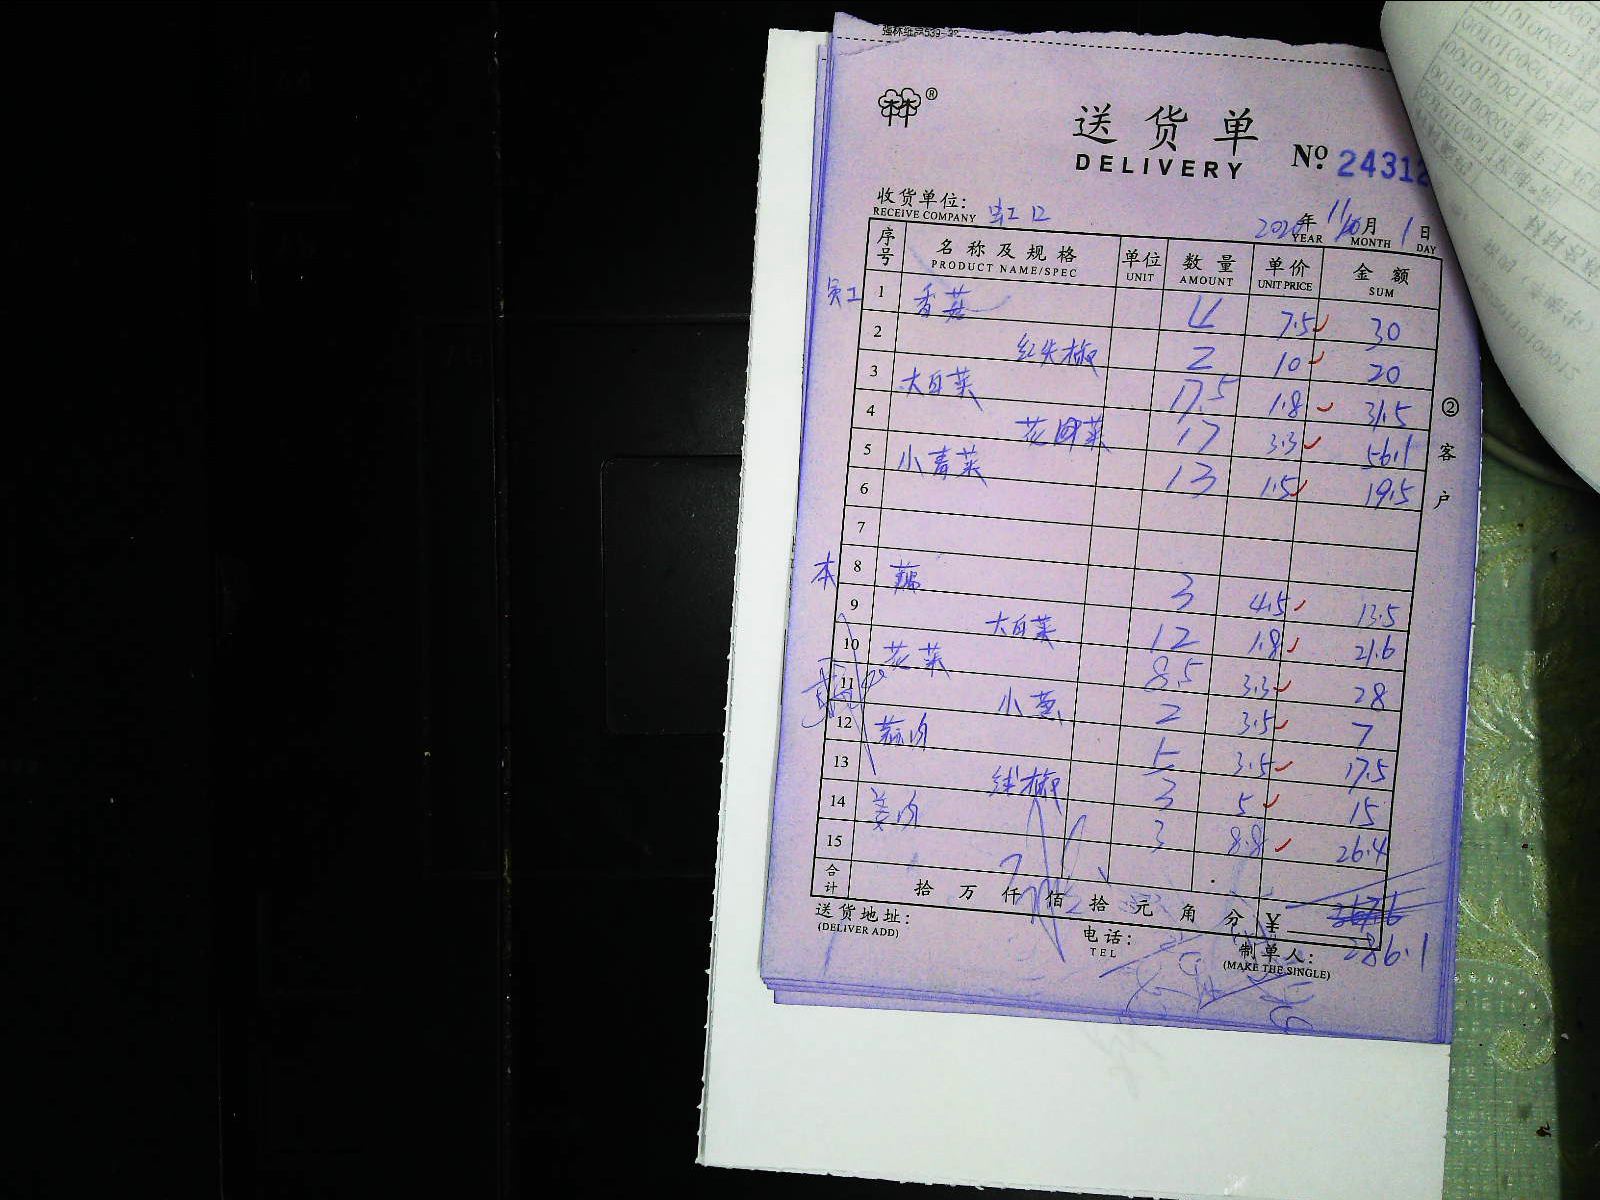 送货单
DELIVERY
№ 24312
收货单位: 虹口
RECEIVE COMPANY
2020年 11月 1日
YEAR MONTH DAY
序号 名称及规格 单位 数量 单价 金额
PRODUCT NAME/SPEC UNIT AMOUNT UNIT PRICE SUM
员工 1 香菇 4 7.5 30
2 红尖椒 2 10 20
3 大白菜 17.5 1.8 31.5
4 花菜 17 3.3 56.1
5 小青菜 13 1.5 19.5
6
7
本 8 藕 3 4.5 13.5
9 大白菜 12 1.8 21.6
10 花菜 8.5 3.3 28
11 小葱 2 3.5 7
12 蒜肉 5 3.5 17.5
13 线椒 3 5 15
14 姜肉 3 8.8 26.4
15
合计 拾 万 仟 佰 拾 元 角 分 ¥
286.1
送货地址:
(DELIVER ADD)
电话:
TEL
制单人:
(MAKE THE SINGLE)
② 客户